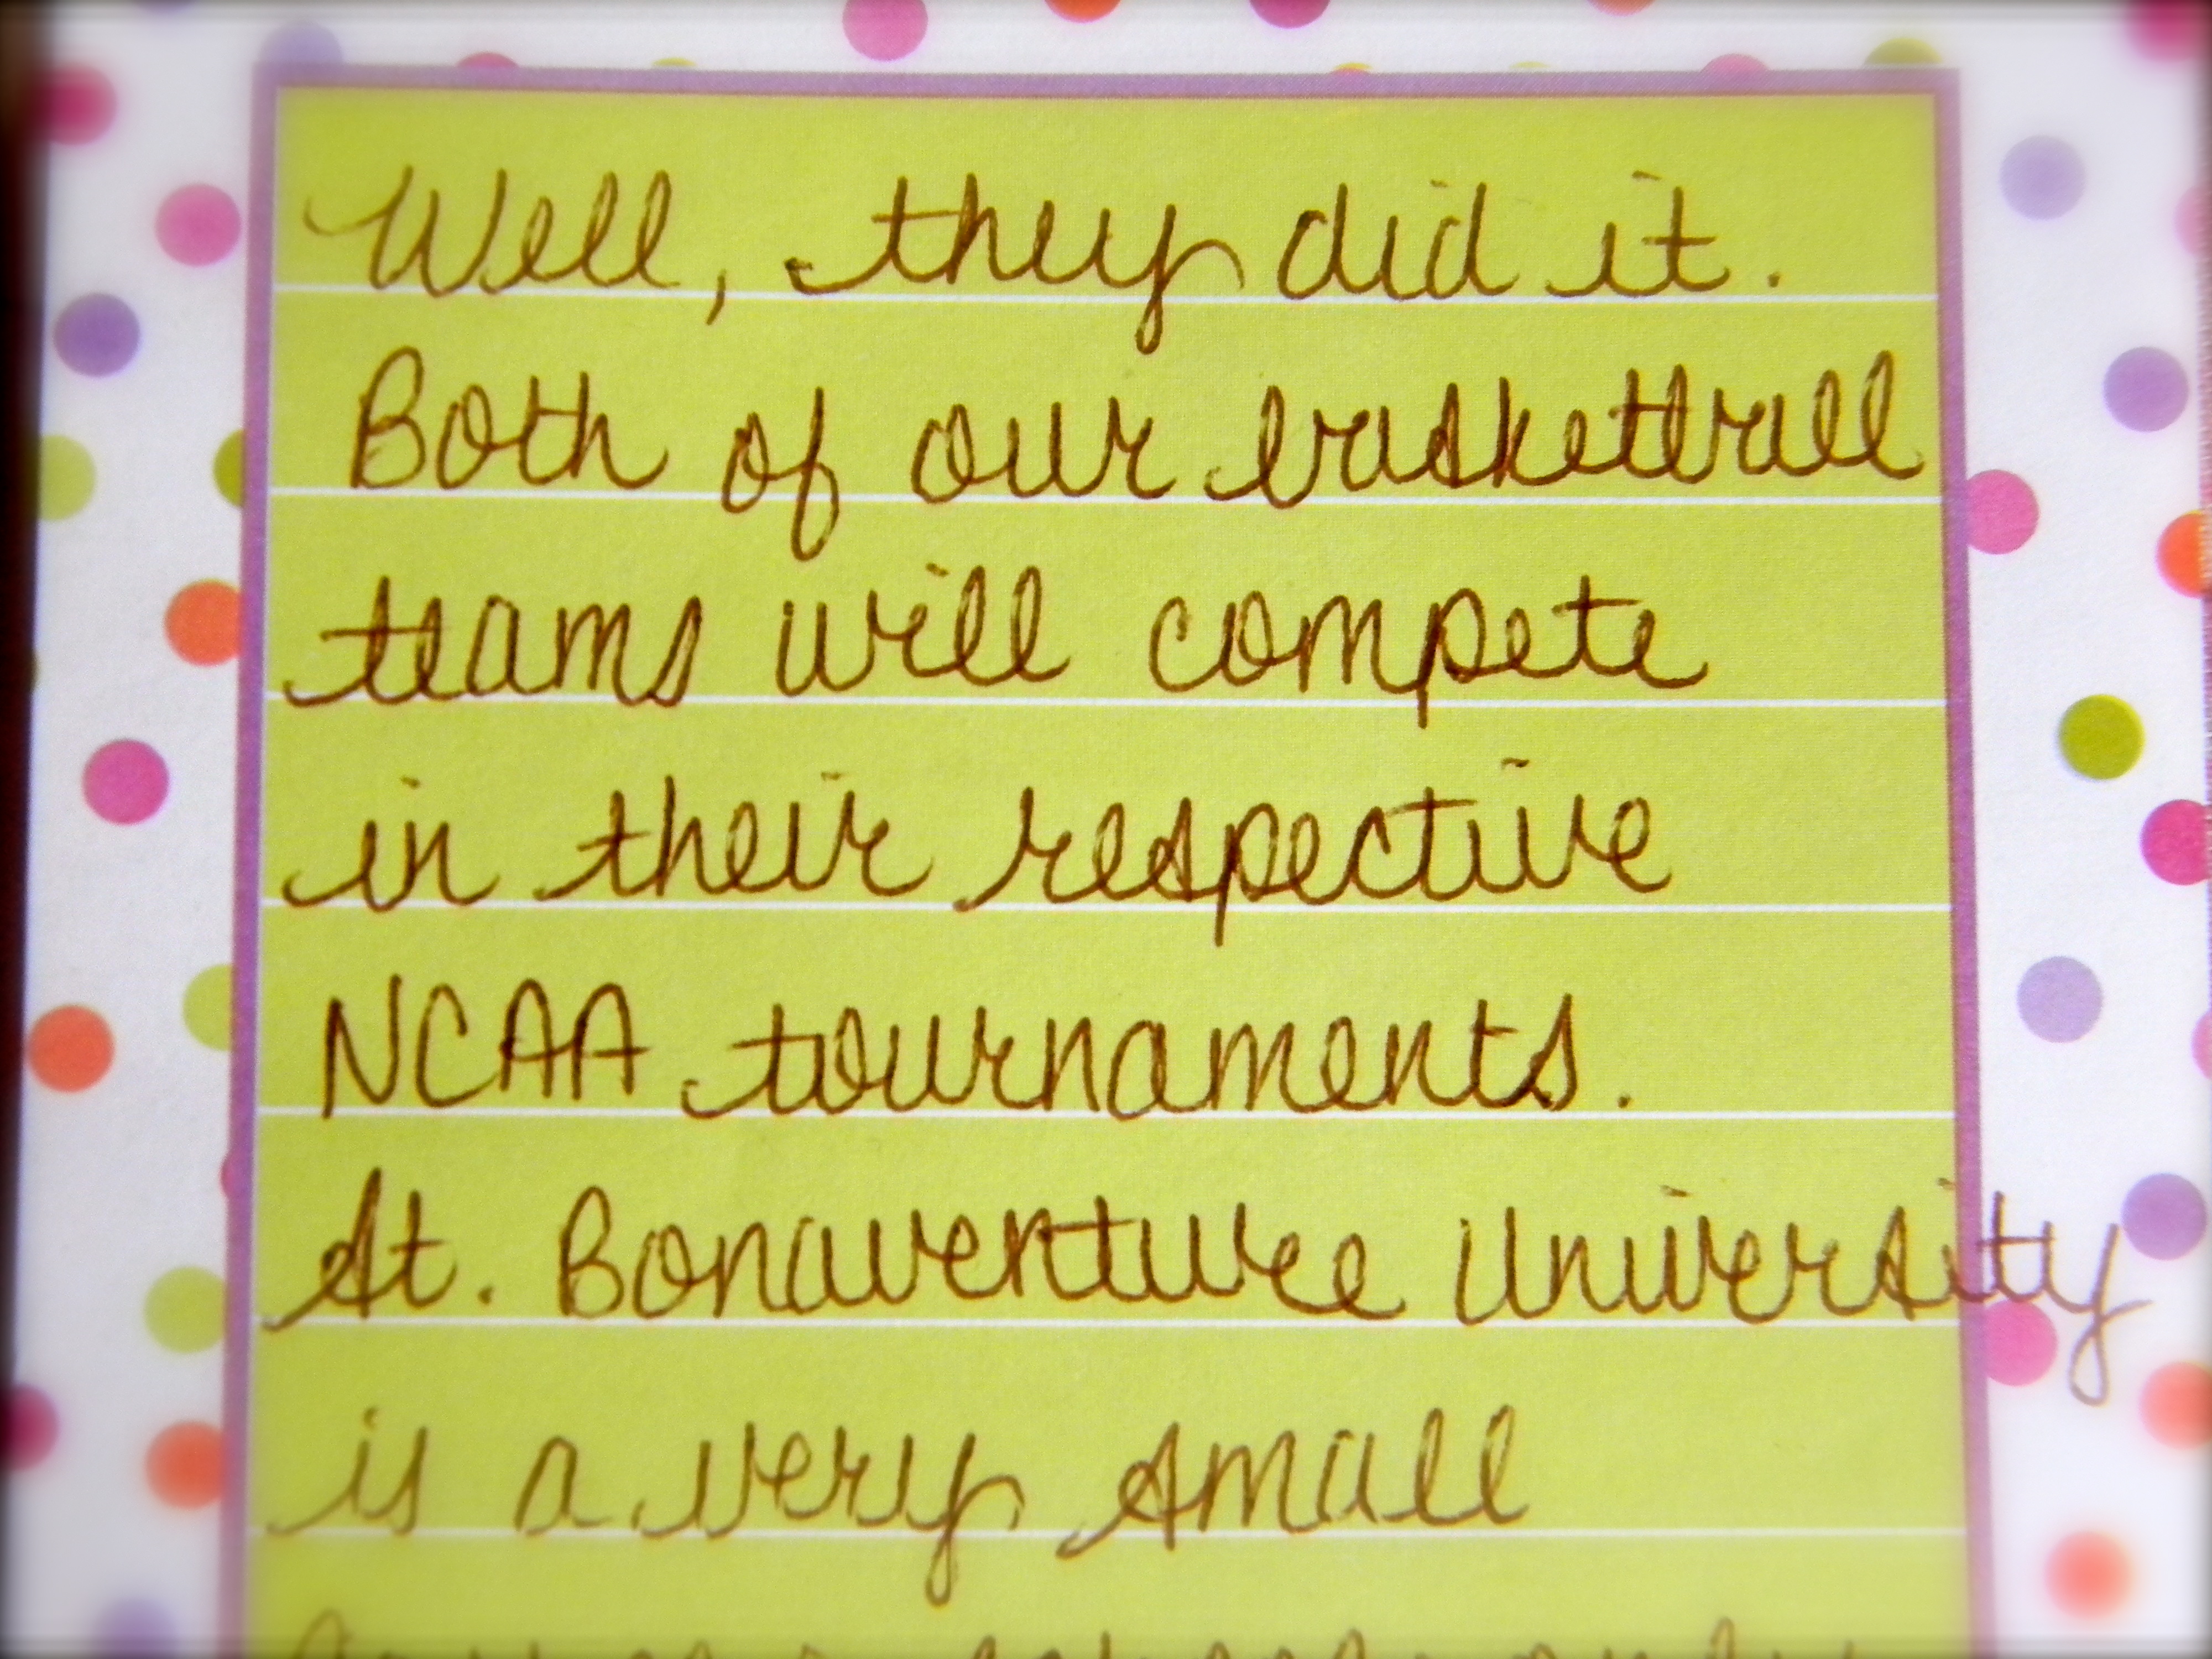 Well, they did it.
Both of our basketball
teams will compete
in their respective
NCAA tournaments.
St. Bonaventure University
is a very small